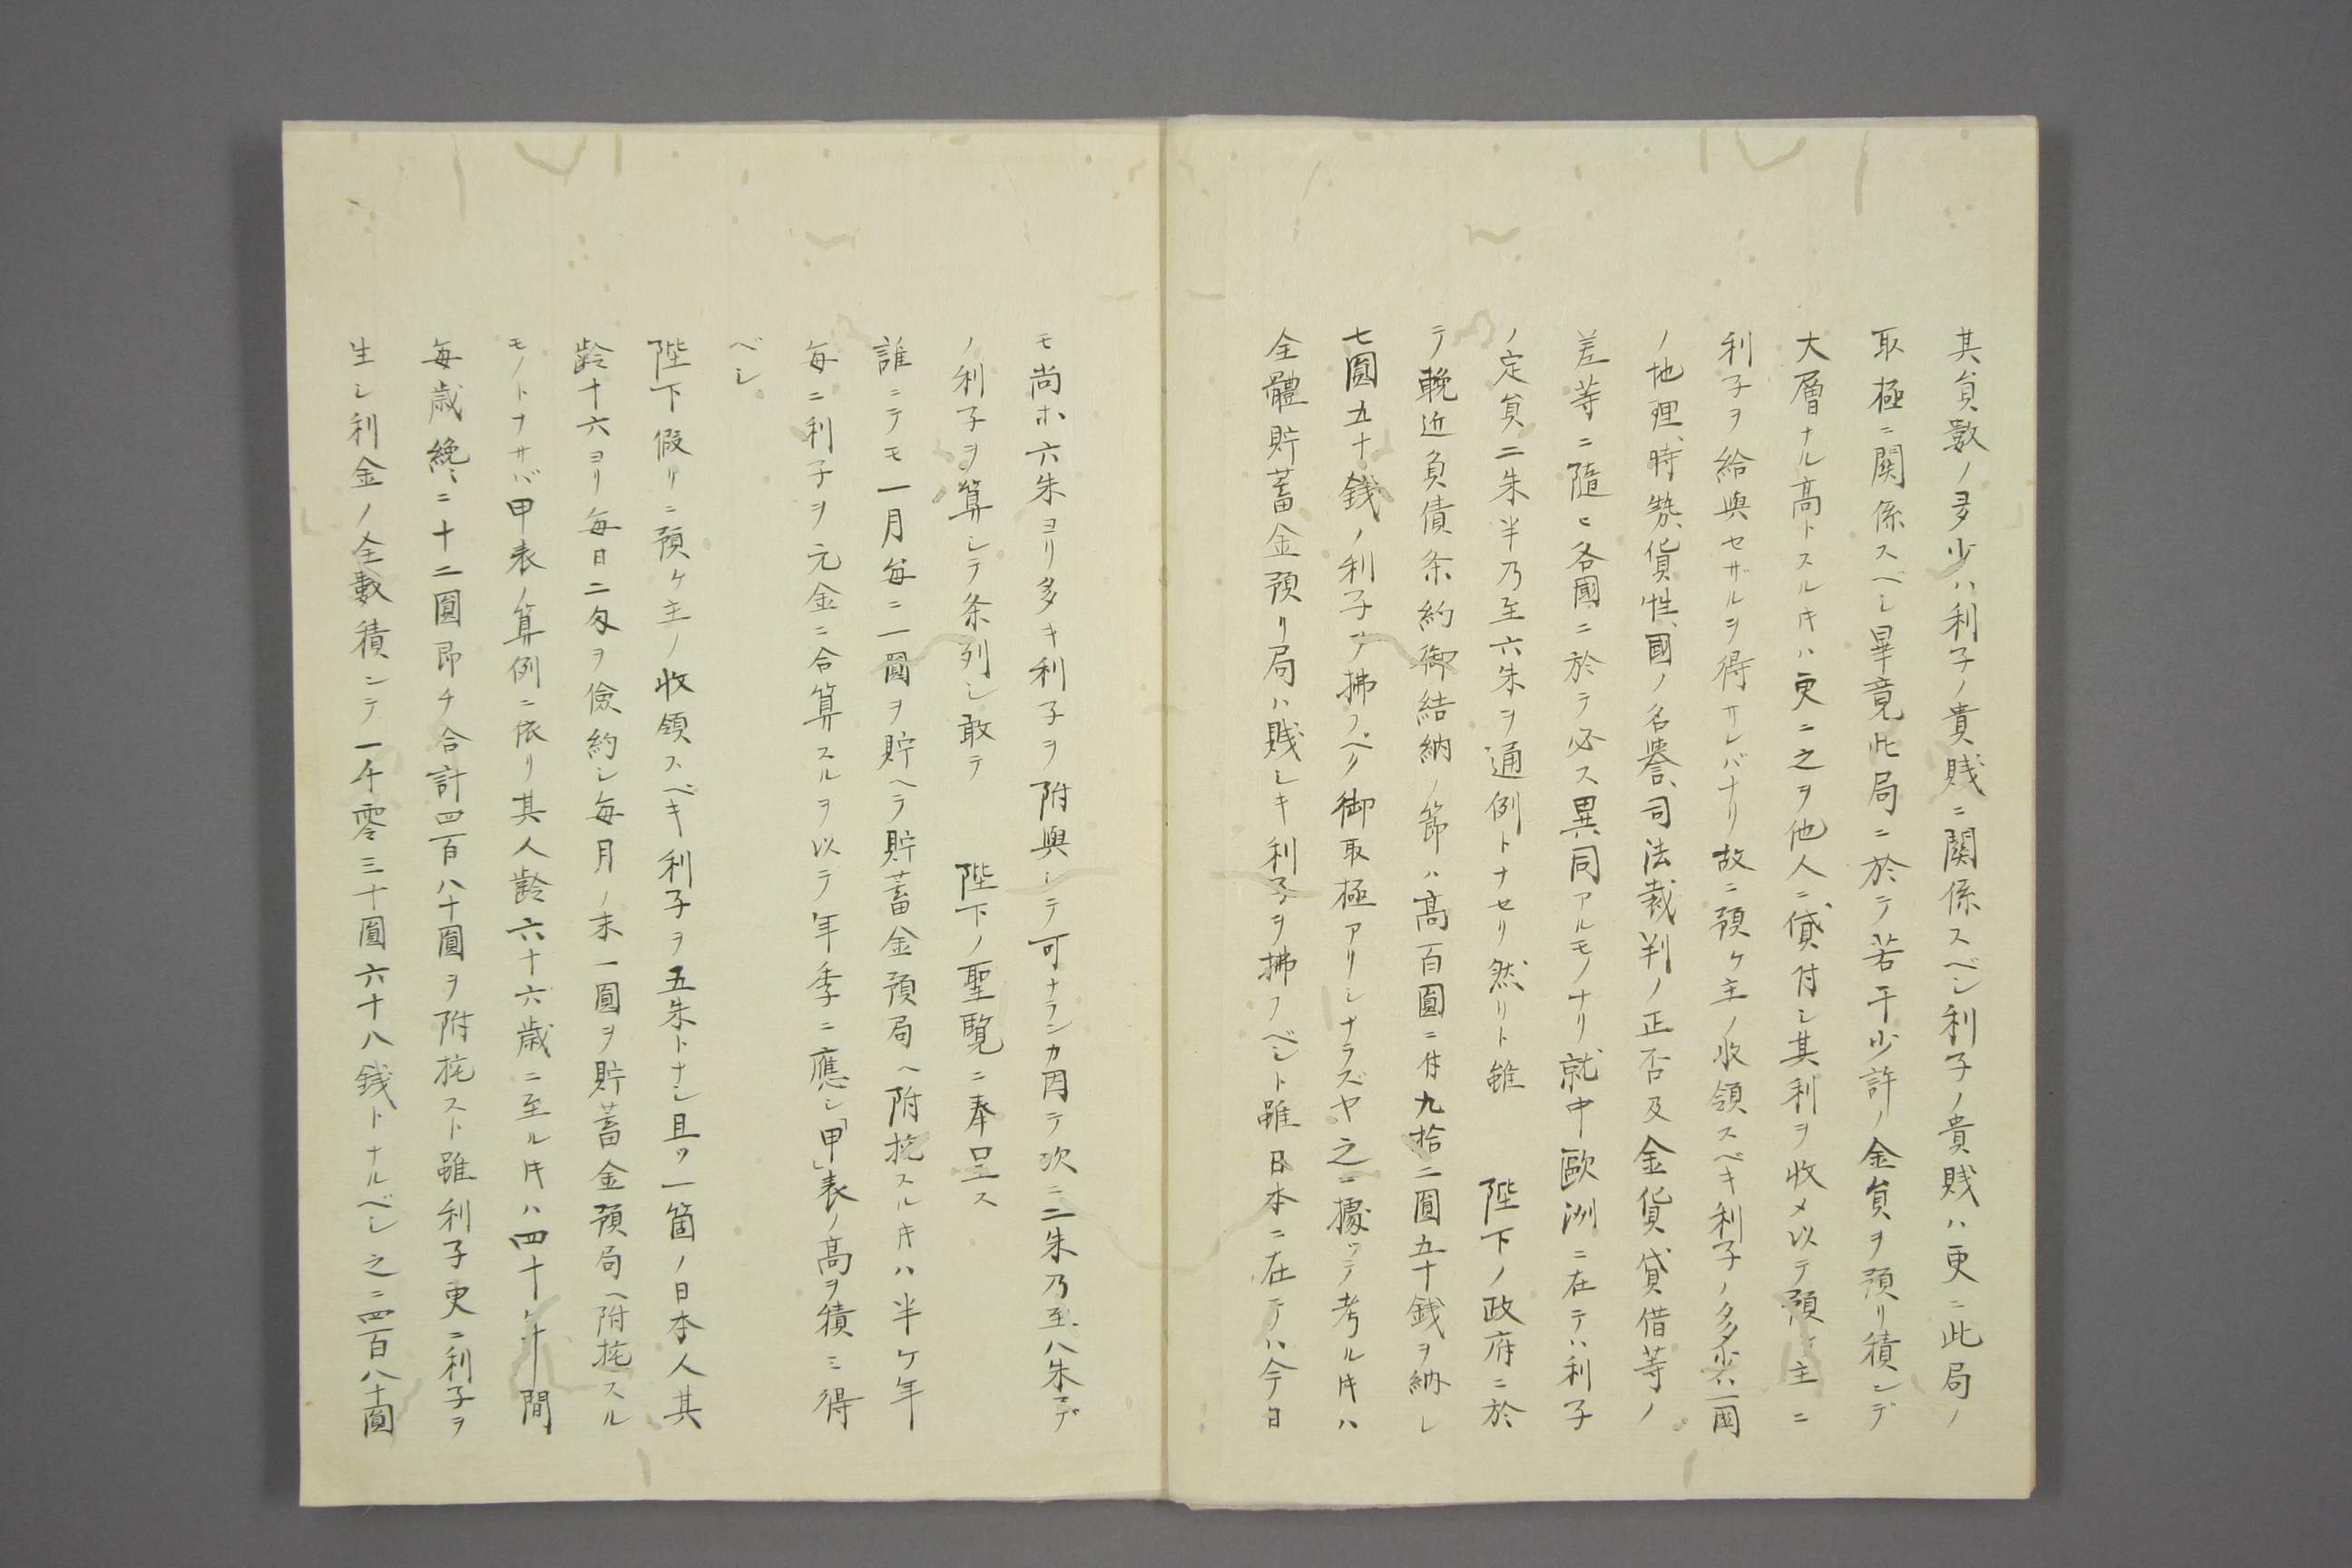 其負數ノ多少ハ利子ノ貴賤ニ関係スベシ利子ノ貴賤ハ更ニ此局ノ
取極ニ関係スベシ畢竟此局ニ於テ若干少許ノ金負ヲ預リ積ンデ
大層ナル高トスル𪜈ハ更ニ之ヲ他人ニ貸付シ其利ヲ收メ以テ預ケ主ニ
利子ヲ給與セザルヲ得サレバナリ故ニ預ケ主ノ收領スベキ利子ノ多少ハ一國
ノ地理、時勢、貨性、國ノ名譽、司法裁判ノ正否及金貨貸借等ノ
差等ニ隨ヒ各國ニ於テ必ス異同アルモノナリ就中歐洲ニ在テハ利子
ノ定負二朱半乃至六朱ヲ通例トナセリ然リト雖　陛下ノ政府ニ於
テ輓近負債条約御結納ノ節ハ高百圓ニ付九拾二圓五十銭ヲ納レ
七圓五十銭ノ利子ヲ拂フベク御取極アリシナラズヤ之ニ據ッテ考ル𪜈ハ
全體貯蓄金預リ局ハ賤シキ利子ヲ拂フベシト雖日本ニ在テハ今日
モ尚ホ六朱ヨリ多キ利子ヲ附與シテ可ナランカ因テ次ニ二朱乃至八朱マデ
ノ利子ヲ算シテ条列シ敢テ　陛下ノ聖覧ニ奉呈ス
誰ニテモ一月毎ニ一圓ヲ貯ヘラ貯蓄金預局ヘ附托スル𪜈ハ半ケ年
毎ニ利子ヲ元金ニ合算スルヲ以テ年季ニ應シ「甲」表ノ高ヲ積ミ得
ベシ
陛下假リニ預ケ主ノ收領スベキ利子ヲ五朱トナシ且ツ一箇ノ日本人其
齢十六ヨリ毎日二匁ヲ儉約シ毎月ノ末一圓ヲ貯蓄金預局ヘ附托スル
モノトナサバ甲表ノ算例ニ依リ其人齢六十六歳ニ至ル𪜈ハ四十ケ年間
毎歳纔ニ十二圓即チ合計四百八十圓ヲ附托スト雖利子更ニ利子ヲ
生シ利金ノ全數積ンテ一千零三十圓六十八銭トナルベシ之ニ四百八十圓